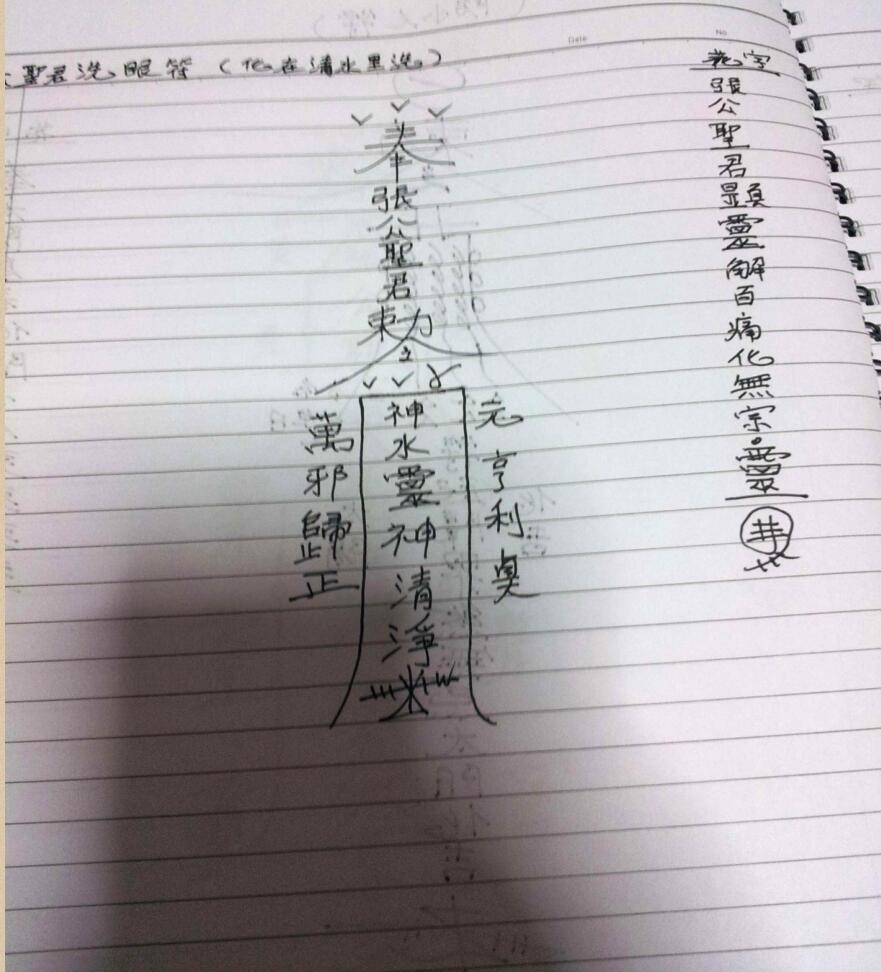 聖君洗眼符（化在清水里洗）
奉
張公聖君
東力
神水靈神清淨
元亨利貞
萬邪歸正
花字
張公聖君顯靈解百痛化無宗靈
Date
No